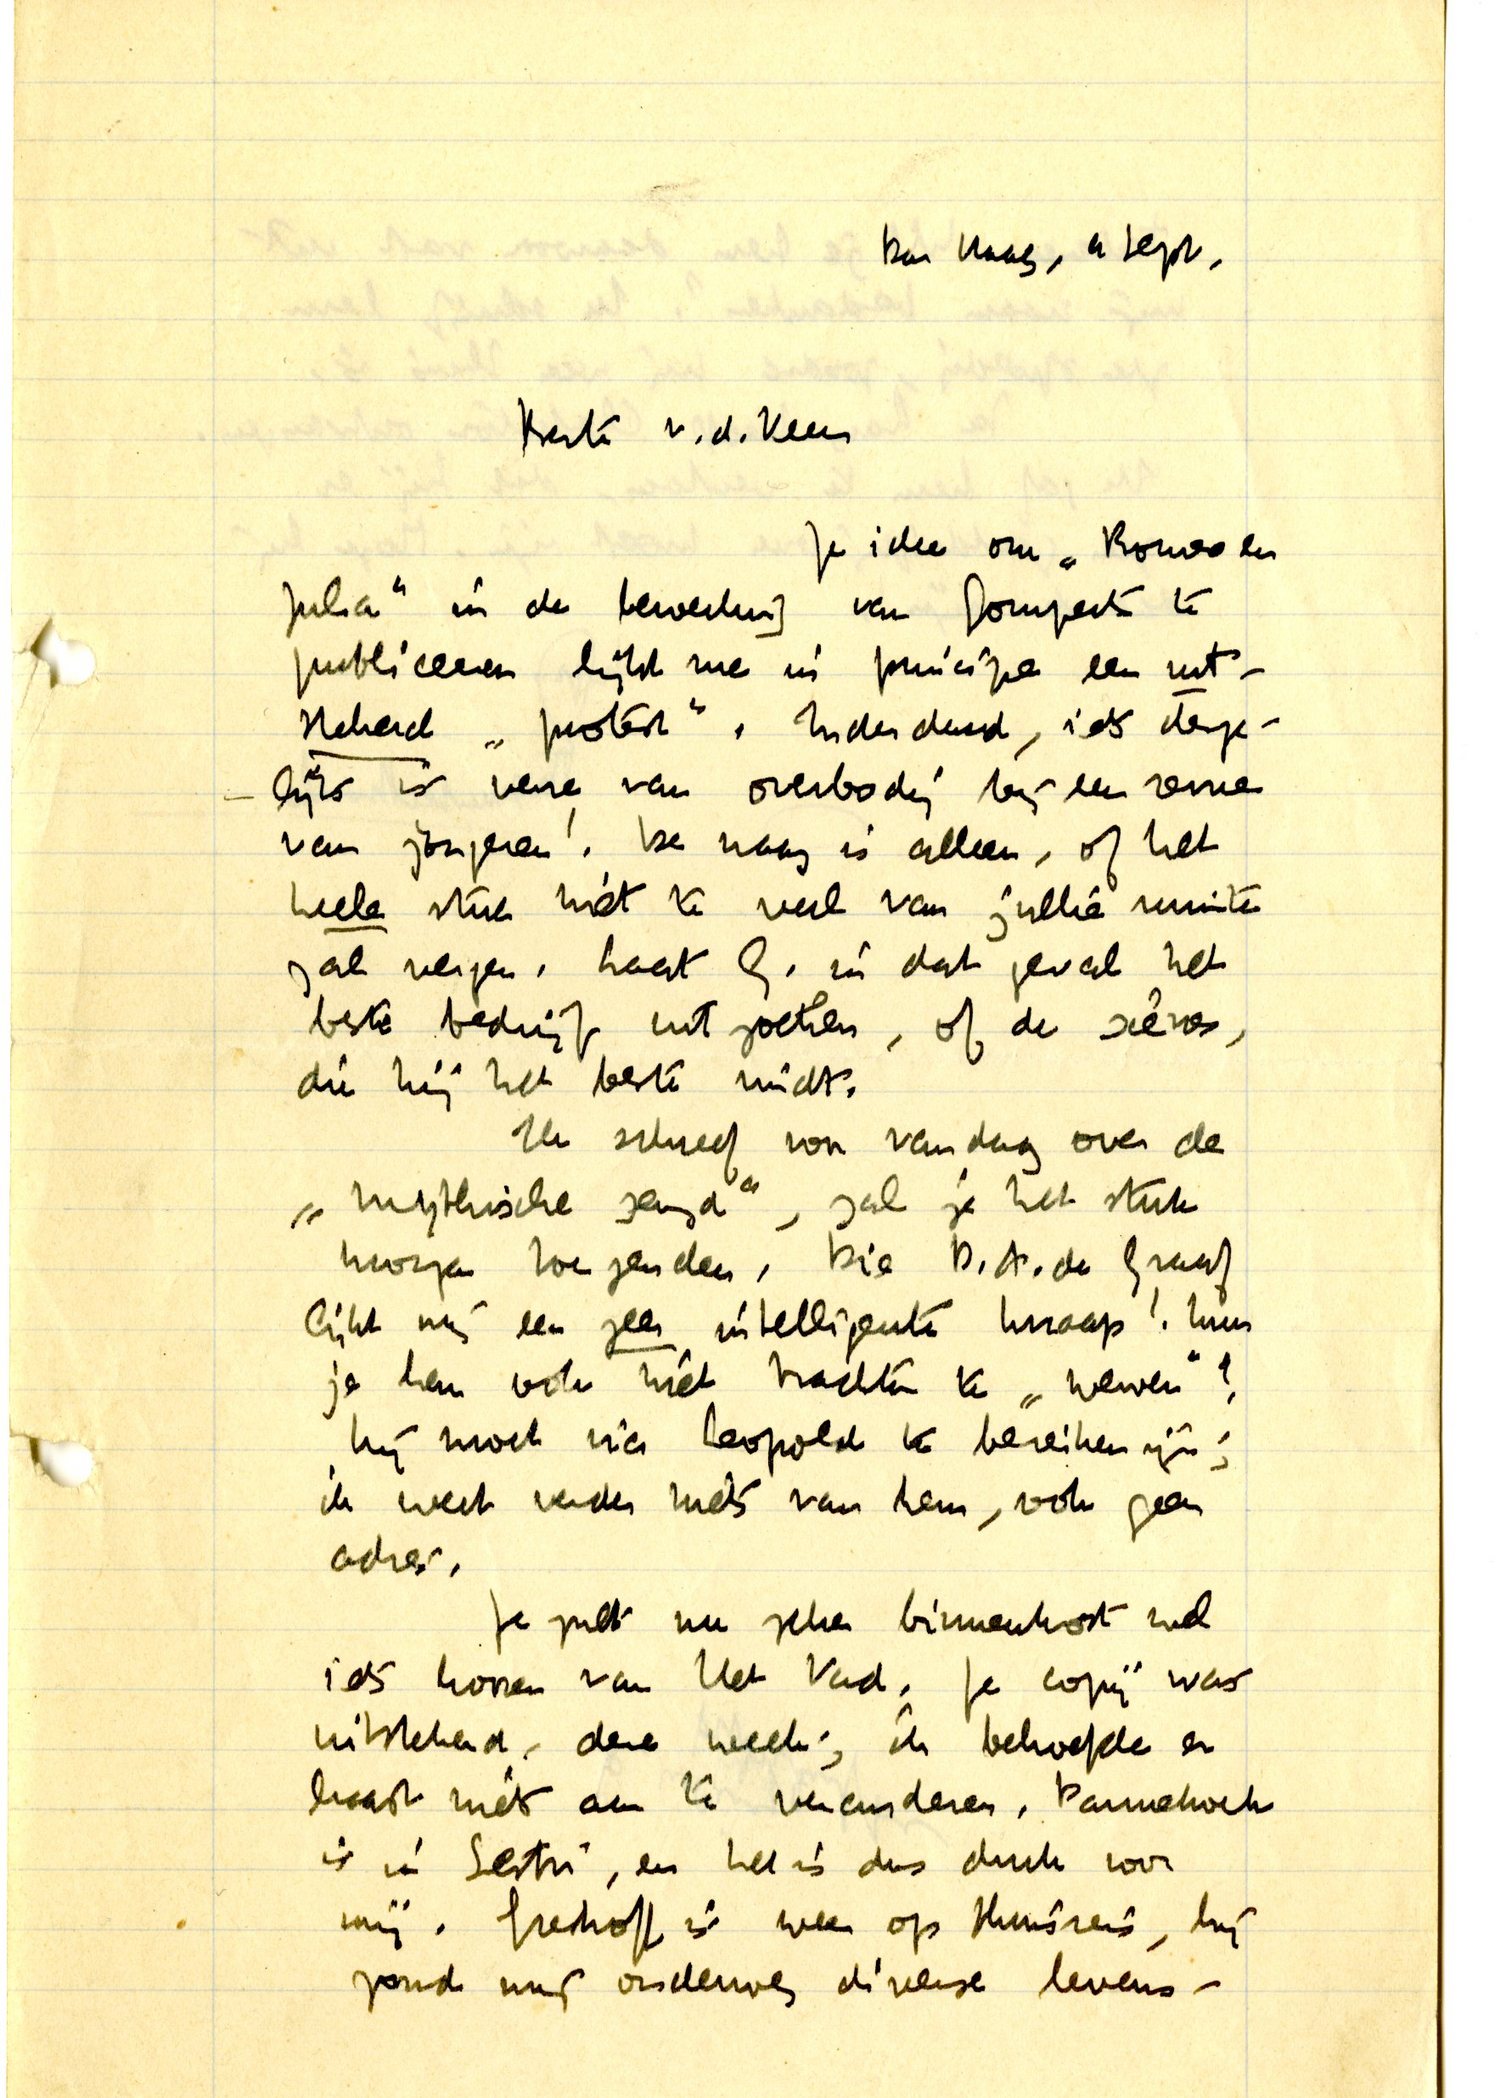 Den Haag, 4 Sept.
Beste v.d. Veen
Je idee om „Romeo en
Julia" in de bewerking van Gomperts te
publiceeren lijkt me in principe een uit-
stekend „protest". Inderdaad, iets derge-
lijks is verre van overbodig bij een revue
van jongeren! De vraag is alleen, of het
heele stuk niet te veel van jullie ruimte
zal vergen. Laat G. in dat geval het
beste bedrijf uitzoeken, of de scènes,
die hij het beste vindt.
Ik schreef voor vandaag over de
„mythische jeugd", zal je het stuk
morgen toezenden. Die D.A. de Graaf
lijkt mij een zeer intelligente knaap! Kun
je hem ook niet trachten te „werven"?
Hij moet via Leopold te bereiken zijn;
ik weet verder niets van hem, ook geen
adres.
Je zult nu zeker binnenkort wel
iets hooren van Het Vad. Je copij was
uitstekend, deze week; ik behoefde er
haast niets aan te veranderen. Pannekoek
is in Sestri, en het is dus druk voor
mij. Greshoff is weer op thuisreis, hij
zond mij onderweg diverse levens-